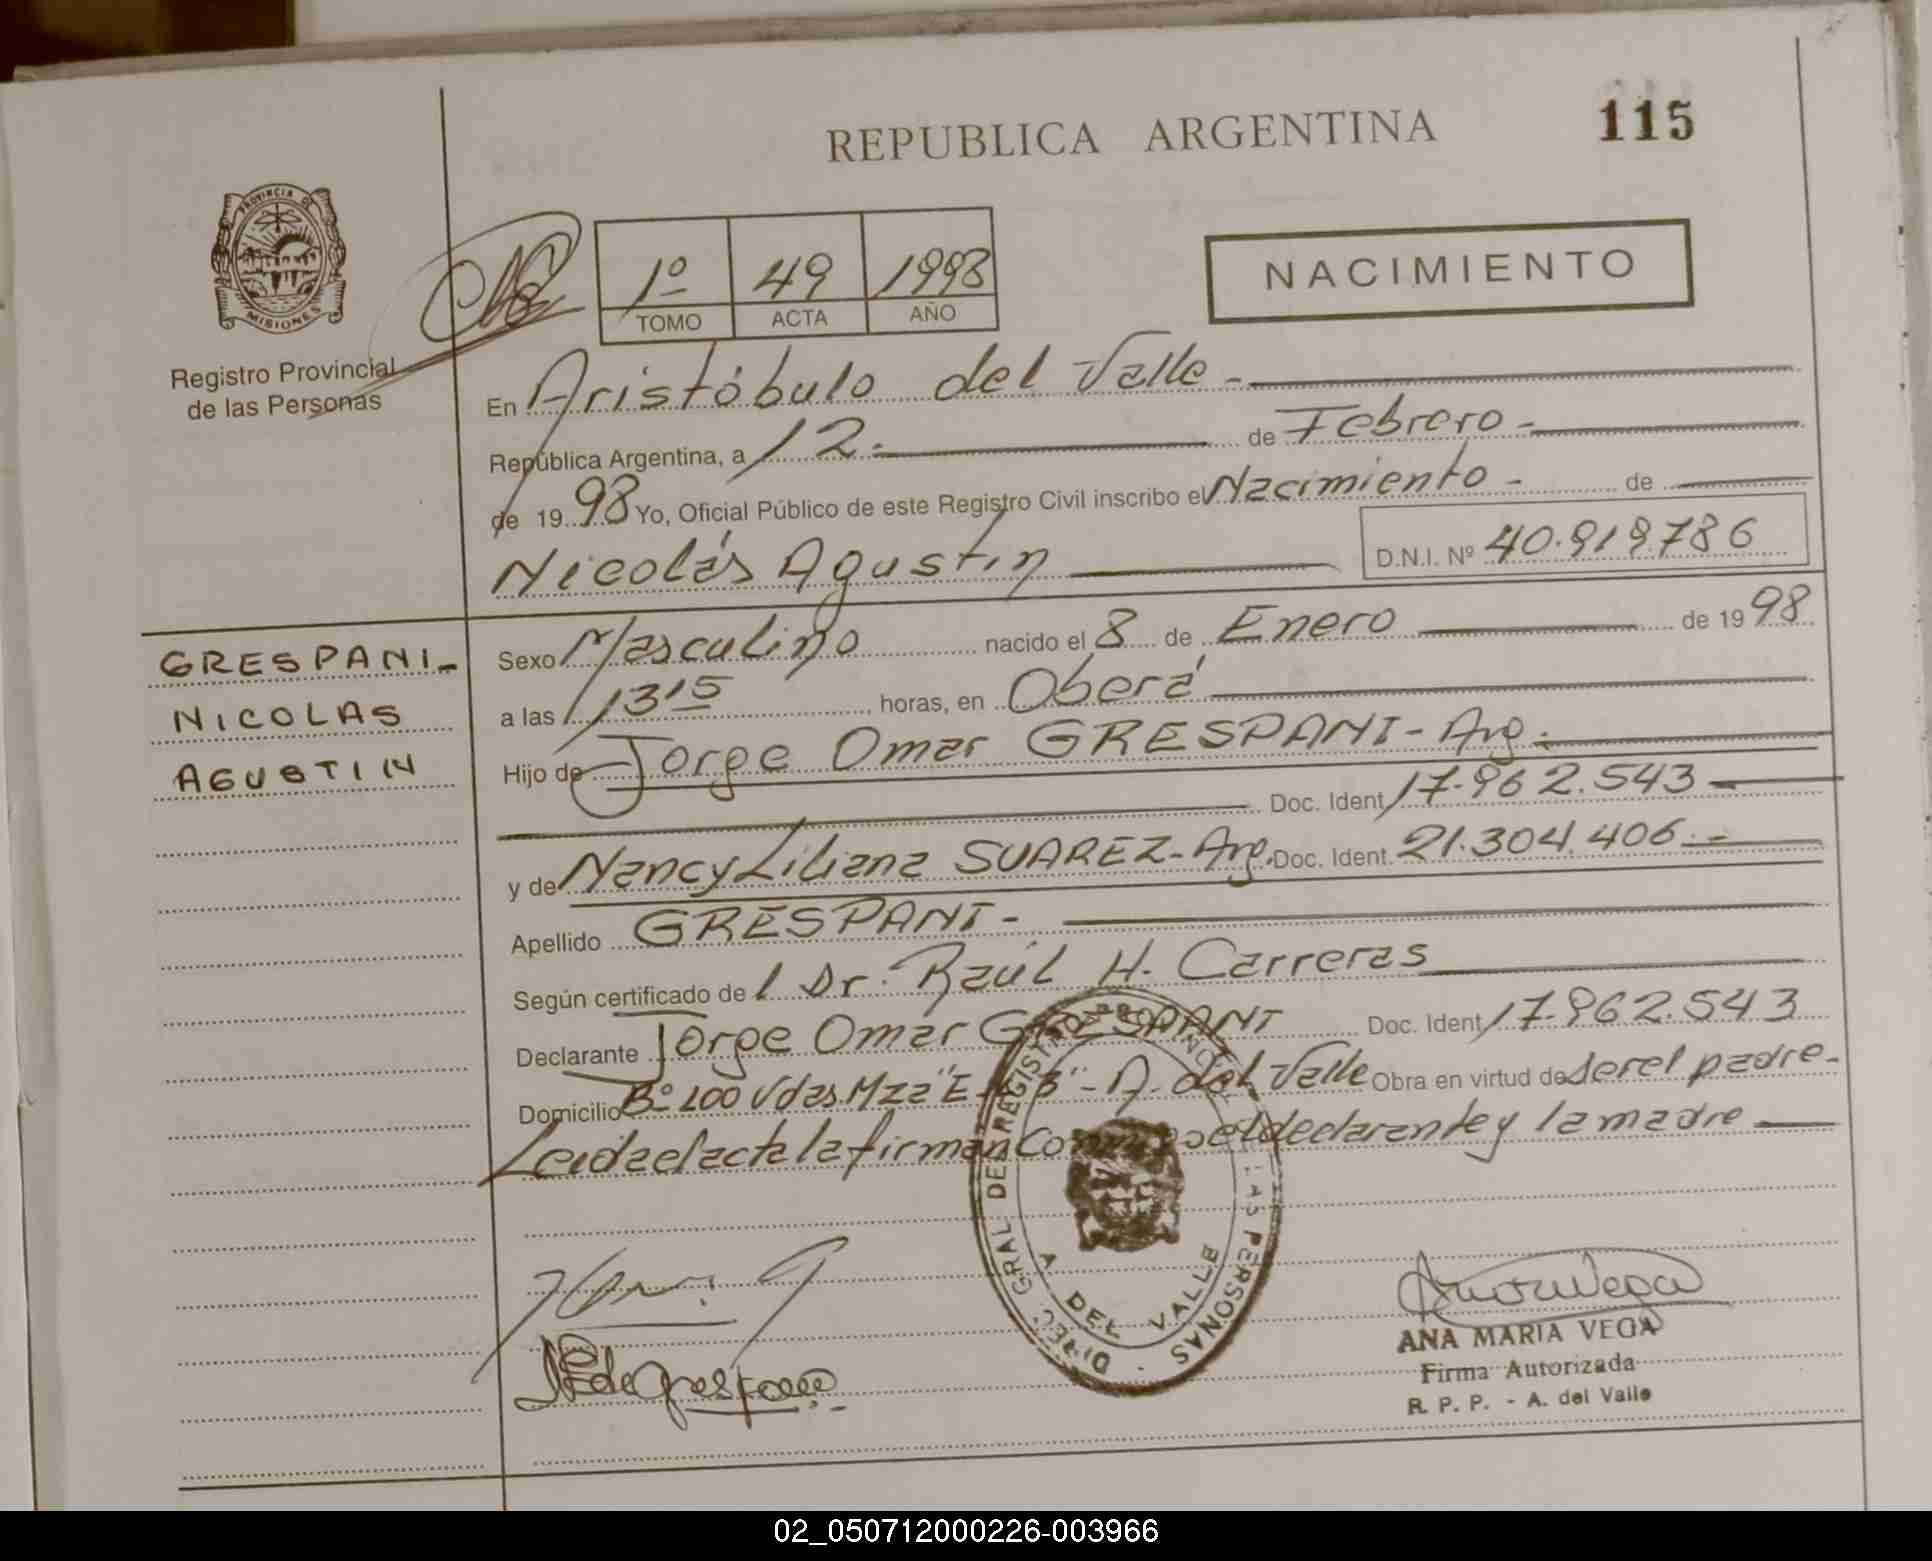 REPUBLICA ARGENTINA
115
PROVINCIA DE
MISIONES
Registro Provincial
de las Personas
1º 49 1998
TOMO ACTA AÑO
NACIMIENTO
En Aristóbulo del Valle -
República Argentina, a 12.- de Febrero -
de 1998 Yo, Oficial Público de este Registro Civil inscribo el Nacimiento - de
Nicolás Agustín
D.N.I. Nº 40.919.786
GRESPANI-
NICOLAS
AGUSTIN
Sexo Masculino nacido el 8 de Enero de 1998
a las 13,15 horas, en Oberá
Hijo de Jorge Omar GRESPANI - Arg.
Doc. Ident 17.962.543
y de Nancy Liliana SUAREZ - Arg. Doc. Ident. 21.304.406.-
Apellido GRESPANI -
Según certificado del Dr. Raúl H. Carreras
Declarante Jorge Omar GRESPANI Doc. Ident 17.962.543
Domicilio Bº 100 Vdas Mza "E - A. del Valle Obra en virtud de ser el padre.
Leida el acta la firman el declarante y la madre
DIREC. GRAL DE REGISTRO LAS PERSONAS
A DEL VALLE
ANA MARIA VEGA
Firma Autorizada
R. P. P. - A. del Valle
02_050712000226-003966